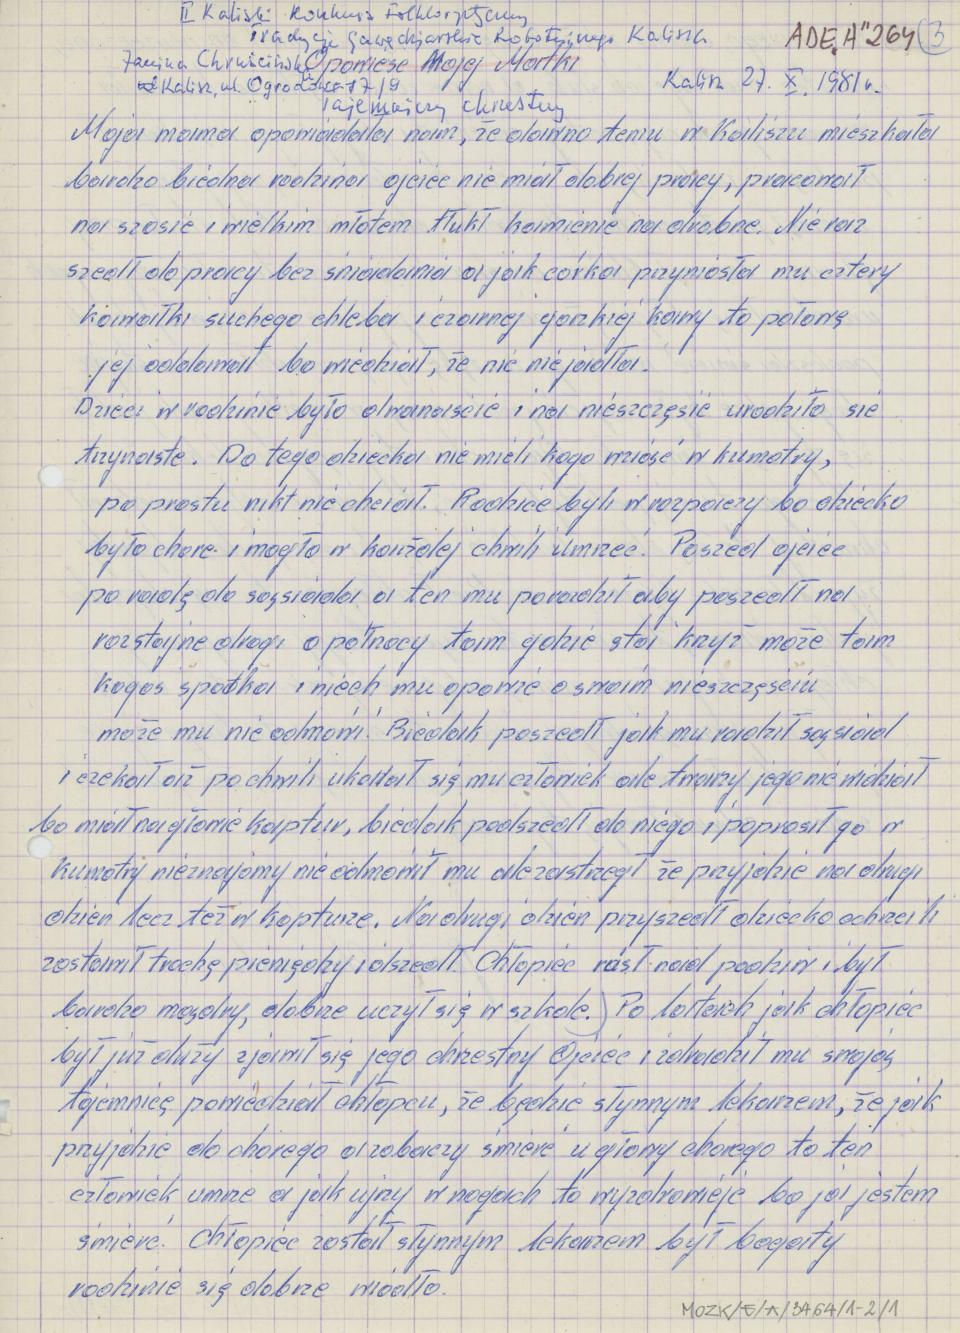 II Kaliski Konkurs Folklorystyczny
Tradycje Gawędziarskie Robotniczego Kalisza
ADE "A" 264 (3
Janina Chruścińska Opowieść Mojej Matki
Kalisz, ul. Ogrodowa 17/9
Kalisz 27. X. 1981 r.
Tajemniczy chrzestny
Moja mama opowiadała nam, że dawno temu w Kaliszu mieszkała
bardzo biedna rodzina ojciec nie miał dobrej pracy, pracował
na szosie i wielkim młotem tłukł kamienie na drobne. Nie raz
szedł do pracy bez śniadania a jak córka przyniosła mu cztery
kawałki suchego chleba i czarnej gorzkiej kawy to połowę
jej oddawał bo wiedział, że nic nie jadła.
Dzieci w rodzinie było dwanaście i na nieszczęście urodziło się
trzynaste. Do tego dziecka nie mieli kogo wziąść w kumotry,
po prostu nikt nie chciał. Rodzice byli w rozpaczy bo dziecko
było chore i mogło w każdej chwili umrzeć. Poszed ojciec
po radę do sąsiada a ten mu poradził aby poszedł na
rozstajne drogi o północy tam gdzie stoi krzyż może tam
kogoś spotka i niech mu opowie o swoim nieszczęściu
może mu nie odmówi. Biedak poszedł jak mu radził sąsiad
i czekał aż po chwili ukazał się mu człowiek ale twarzy jego nie widział
bo miał na głowie kaptur, biedak podszedł do niego i poprosił go w
kumotry nieznajomy nie odmówił mu ale zastrzegł że przyjdzie na drugi
dzień lecz też w kapturze. Na drugi dzień przyszedł dziecko ochrzcili
zostawił trochę pieniędzy i odszedł. Chłopiec rósł nad podziw i był
bardzo mądry, dobrze uczył się w szkole.) Po latach jak chłopiec
był już duży zjawił się jego chrzestny Ojciec i zdradził mu swoją
tajemnicę powiedział chłopcu, że będzie słynnym lekarzem, że jak
przyjdzie do chorego a zobaczy śmierć u głowy chorego to ten
człowiek umrze a jak ujrzy w nogach to wyzdrowieje bo ja jestem
śmierć. Chłopiec został słynnym lekarzem był bogaty
rodzinie się dobrze wiodło.
MOZK/E/A/3464/1-2/1